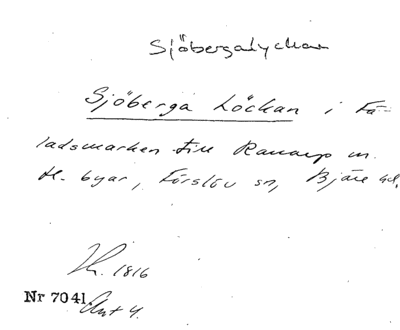 Sjöbergalyckan
Sjöberga Löckan i Fä-
ladsmarken till Ranarp m.
fl. byar, Förslöv sn, Bjäre hd.
1816
Nr 7041.